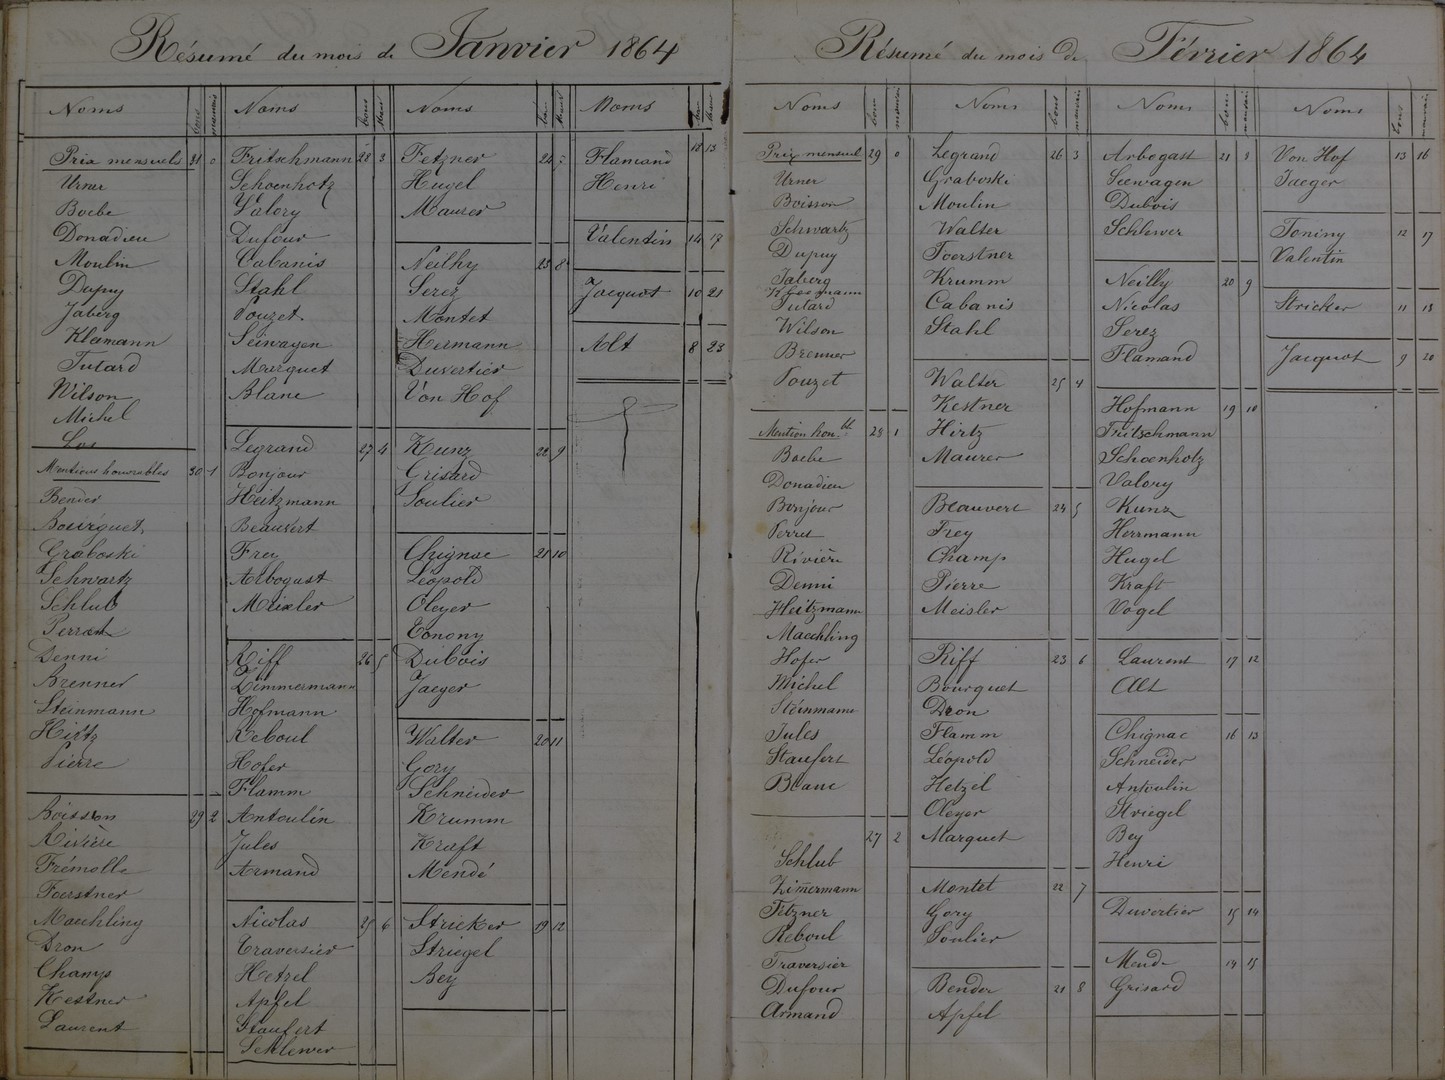 Résumé du mois de Janvier 1864
Noms bons mauvais
Prix mensuels 31 0
Urner
Boebe
Donadieu
Moulin
Dupuy
Jaberg
Kleemann
Tutard
Wilson
Michel
Los
Mentions honorables 30 1
Bender
Bourguet
Graboski
Schwartz
Schlub
Perrot
Denni
Brenner
Steinmann
Hirtz
Pierre
Boisson 29 2
Rivière
Frémolle
Foerstner
Maechling
Dron
Champ
Kestner
Laurent
Noms bons Mauv
Fritschmann 28 3
Schoenhotz
Valory
Dufour
Cabanis
Stahl
Pouzet
Seiwagen
Marquet
Blanc
Legrand 27 4
Bonjour
Heitzmann
Beauvert
Frey
Arbogast
Meixler
Riff 26 5
Zimmermann
Hofmann
Reboul
Hofer
Flamm
Antoulin
Jules
Armand
Nicolas 25 6
Traversier
Hetzel
Apfel
Staufert
Schlewer
Noms bon Mauv
Fetzner 24 7
Hugel
Maurer
Neilhy 23 8
Serez
Montet
Hermann
Duvertier
Von Hof
Kunz 22 9
Grisard
Soulier
Chignac 21 10
Léopold
Oleyer
Tonony
Dubois
Jaeger
Walter 20 11
Gory
Schneider
Krumm
Kraft
Mendé
Stricker 19 12
Striegel
Bey
Noms bon Mauv
Flamand 18 13
Henri
Valentin 14 17
Jacquot 10 21
Alt 8 23
Résumé du mois de Février 1864
Noms bon mauvais
Prix mensuel 29 0
Urner
Boisson
Schwartz
Dupuy
Jaberg
Kleemann
Tutard
Wilson
Brenner
Pouzet
Mention hon.bl 28 1
Boebe
Donadieu
Bonjour
Perret
Rivière
Denni
Heitzmann
Maechling
Hofer
Michel
Steinmann
Jules
Staufert
Blanc
27 2
Schlub
Zimmermann
Fetzner
Reboul
Traversier
Dufour
Armand
Noms bons mauvais
Legrand 26 3
Graboski
Moulin
Walter
Foerstner
Krumm
Cabanis
Stahl
Walter 25 4
Kestner
Hirtz
Maurer
Beauvert 24 5
Frey
Champ
Pierre
Meisler
Riff 23 6
Bourguet
Dron
Flamm
Léopold
Hetzel
Oleyer
Marquet
Montet 22 7
Gory
Soulier
Bender 21 8
Apfel
Noms bon mauvais
Arbogast 21 8
Seewagen
Dubois
Schlewer
Neilly 20 9
Nicolas
Serez
Flamand
Hofmann 19 10
Fritschmann
Schoenhotz
Valory
Kunz
Herrmann
Hugel
Kraft
Vogel
Laurent 17 12
Alt
Chignac 16 13
Schneider
Antoulin
Striegel
Bey
Henri
Duvertier 15 14
Mende 14 15
Grisard
Noms bons mauvais
Von Hof 13 16
Jaeger
Toniny 12 17
Valentin
Stricker 11 18
Jacquot 9 20